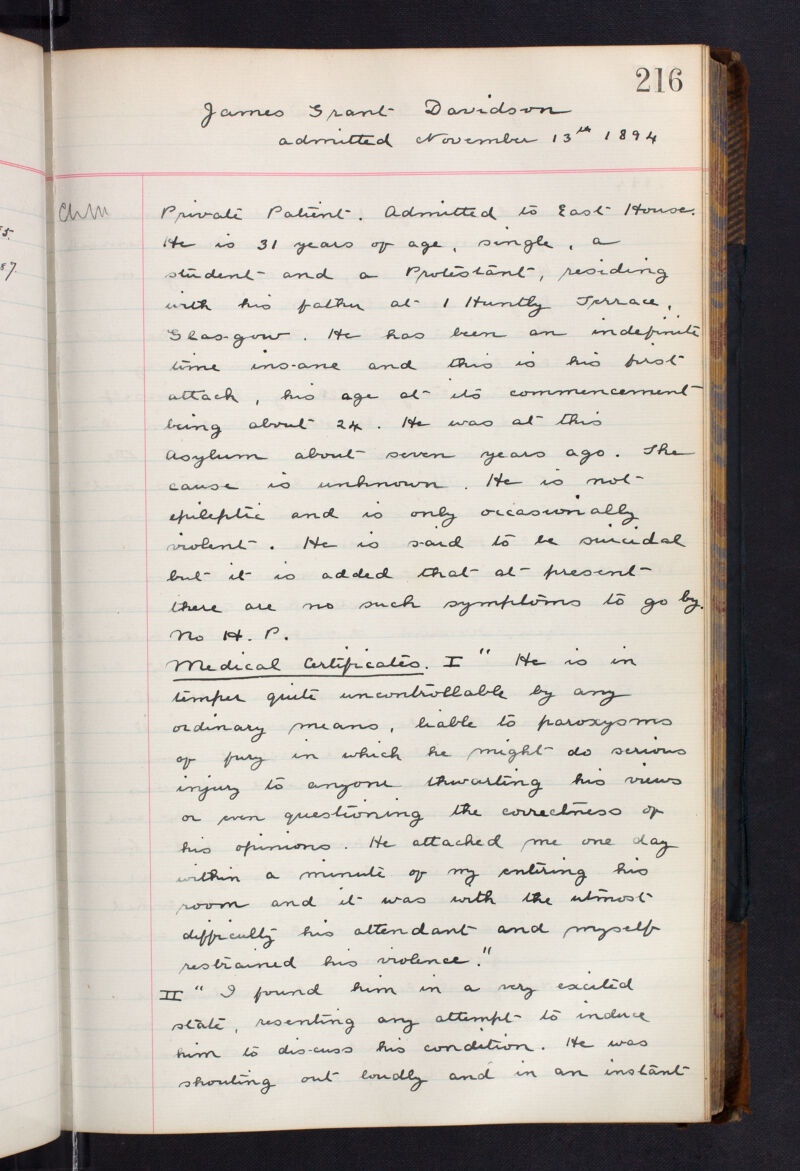 216
James Grant Davidson
admitted November 13th 1894
5.
87.
Private Patient. Admitted to East House.
He is 31 years of age, single, a
student and a Protestant, residing
with his father at 1 Huntly Terrace,
Glasgow. He has been an indefinite
time insane and this is his first
attack, his age at its commencement
being about 24. He was at this
Asylum about seven years ago. The
cause is unknown. He is not
epileptic and is only occasionally
violent. He is said to be suicidal
but it is added that at present
there are no such symptoms to go by.
No H. P.
Medical Certificates. I " He is in
temper quite uncontrollable by any
ordinary means, liable to paroxysms
of fury in which he might do serious
injury to anyone thwarting his views
or even questioning the correctness of
his opinions. He attacked me one day
within a minute of my entering his
room and it was with the utmost
difficulty his attendant and myself
restrained his violence."
II " I found him in a very excited
state, resenting any attempt to induce
him to discuss his condition. He was
shouting out loudly and in an instant